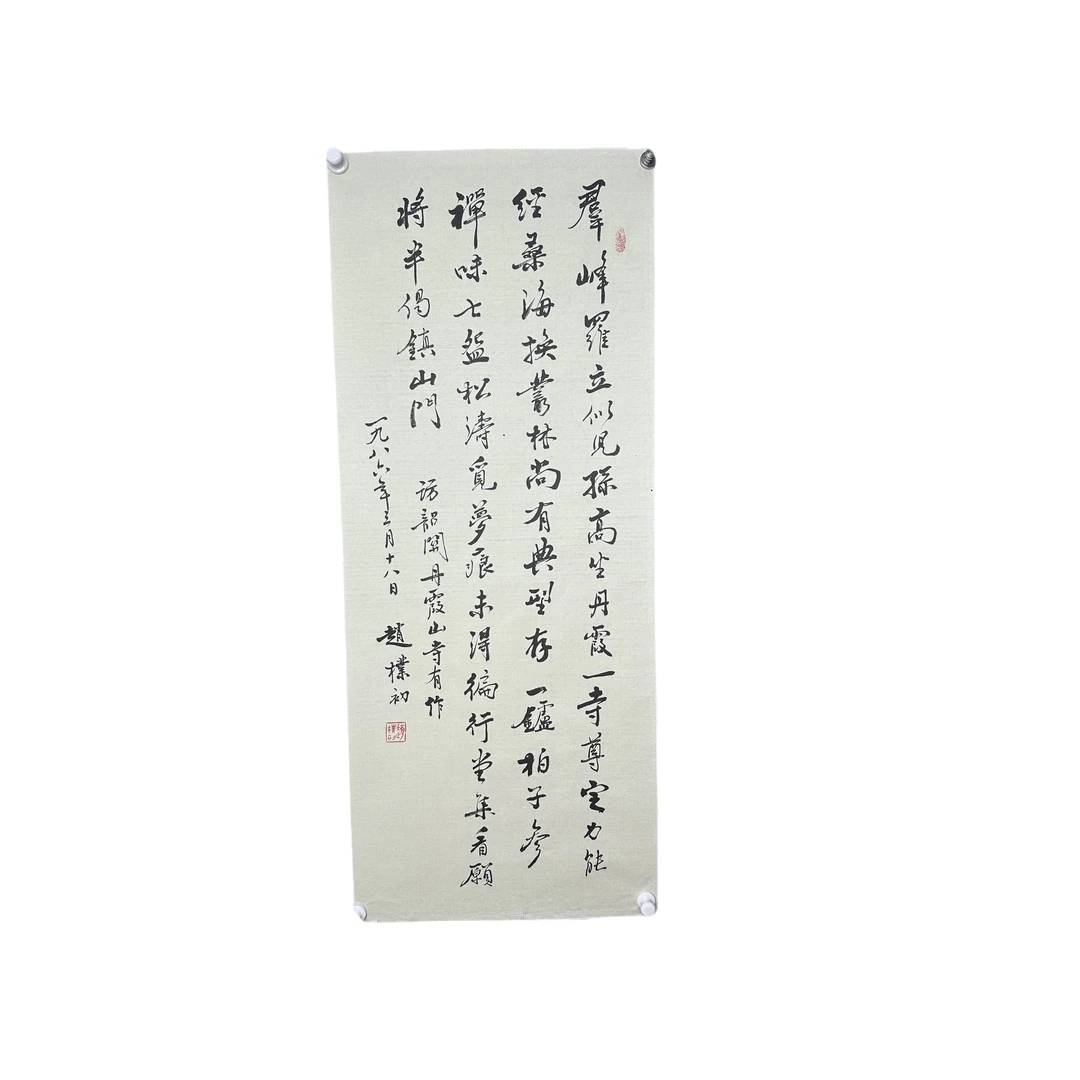 羣峰羅立似兒孫高坐丹霞一寺尊定力能
經桑海換叢林尚有典型存一鑪柏子參
禪味七盌松濤覓夢痕未得徧行堂集看願
將半偈鎮山門
訪韶關丹霞山寺有作
一九八六年三月十八日
趙樸初